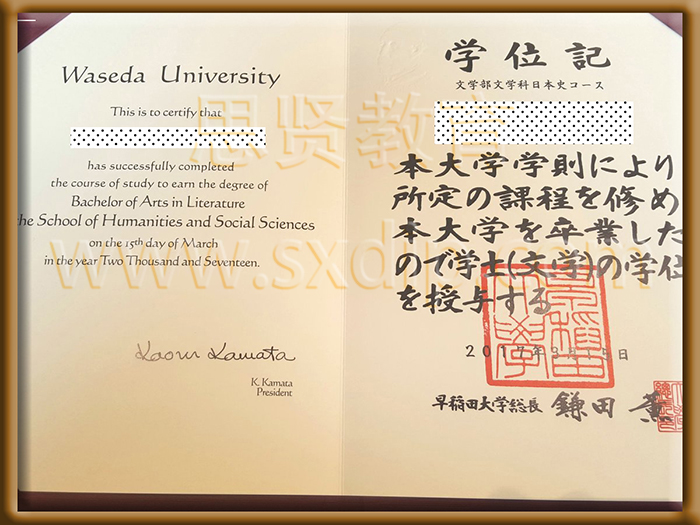 Waseda University
This is to certify that
has successfully completed
the course of study to earn the degree of
Bachelor of Arts in Literature
the School of Humanities and Social Sciences
on the 15th day of March
in the year Two Thousand and Seventeen.
Kaoru Kamata
K. Kamata
President
学位記
文学部文学科日本史コース
本大学学則により
所定の課程を修め
本大学を卒業した
ので学士(文学)の学位
を授与する
2017年3月15日
早稲田大学総長 鎌田 薫
早稲田大学
思贤教育